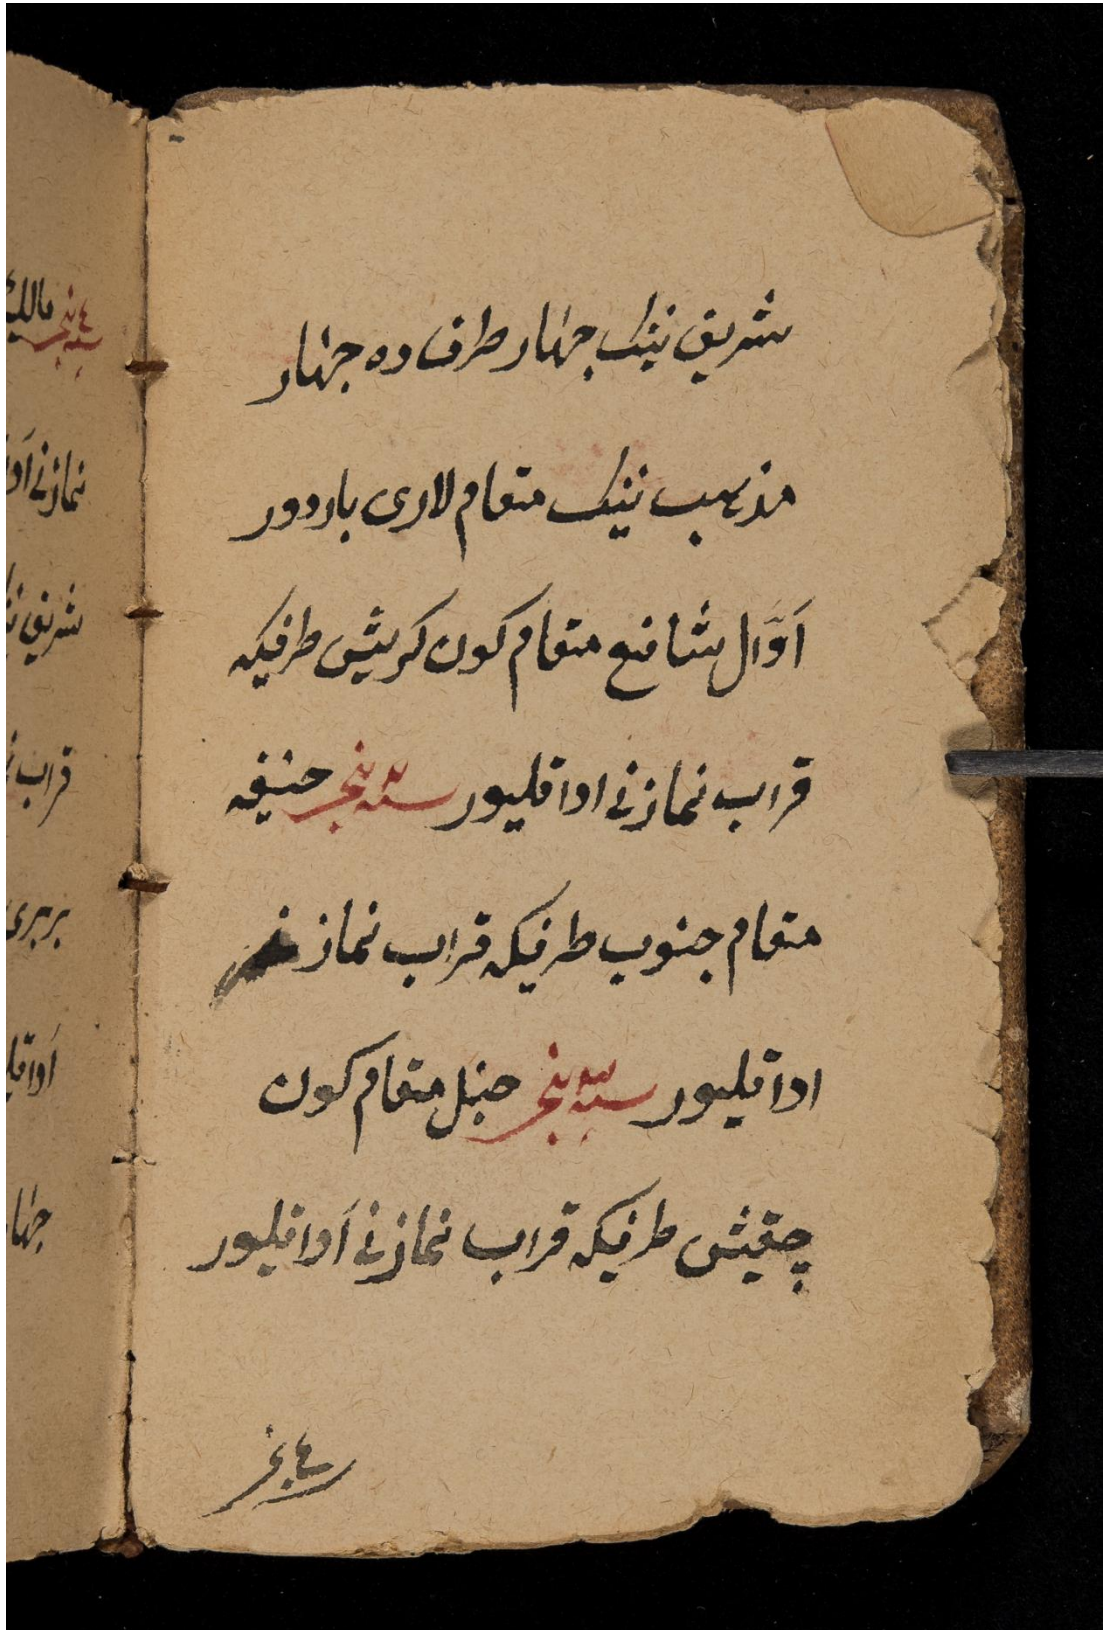 شریف نینک جهار طرف ده جهار
مذهب نینک مقام لاری باردور
اَوَّال شافع مقام کون کریش طرفیکه
قراب نمازنی ادا قلیور سنه ٢ نجی حنیفه
مقام جنوب طرفیکه قراب نماز نی
ادا قلیور سنه ٣ نجی حنبل مقام کون
چقیش طرفیکه قراب نمازنی اَدا قلیور
مالک
نمازنی اَدا
شریف
قراب
بربری
اَدا قل
جها